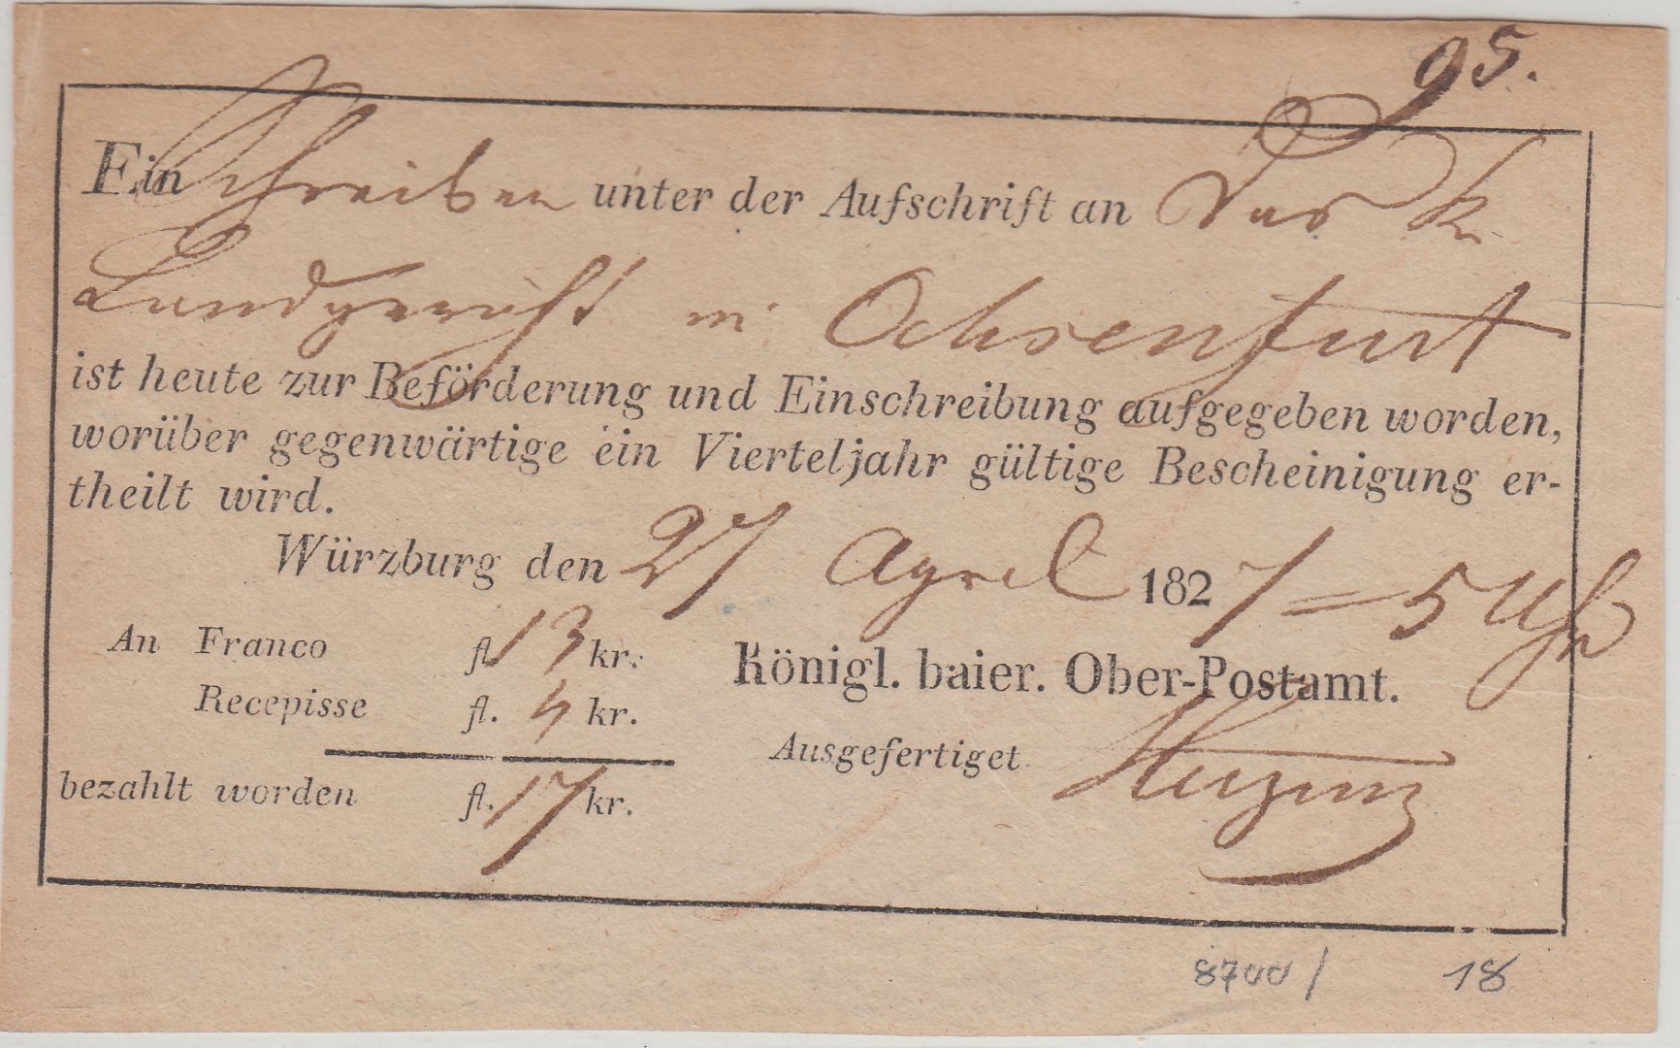 95.
Ein Schreiben unter der Aufschrift an Das K
Landgericht in Ochsenfurt
ist heute zur Beförderung und Einschreibung aufgegeben worden,
worüber gegenwärtige ein Vierteljahr gültige Bescheinigung er-
theilt wird.
Würzburg den 27 April 1827 – 5 Uhr
An Franco fl. 13 kr.
Recepisse fl. 4 kr.
Königl. baier. Ober-Postamt.
Ausgefertiget
bezahlt worden fl. 17 kr.
8700/ 18